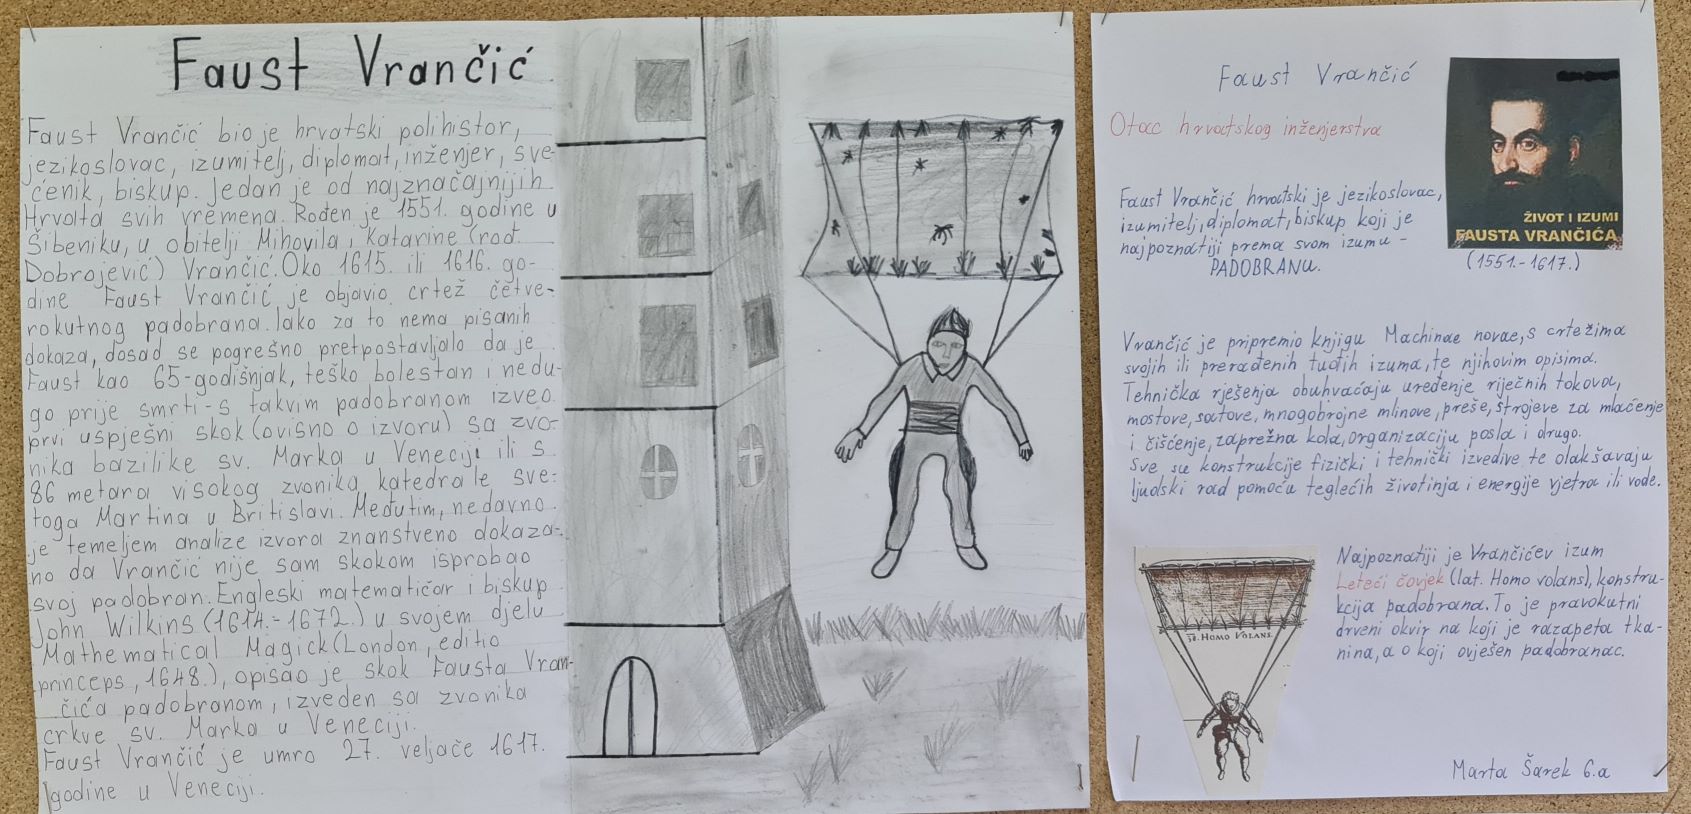 Faust Vrančić
Faust Vrančić bio je hrvatski polihistor,
jezikoslovac, izumitelj, diplomat, inženjer, sve-
ćenik, biskup. Jedan je od najznačajnijih
Hrvata svih vremena. Rođen je 1551. godine u
Šibeniku, u obitelji Mihovila i Katarine (rođ.
Dobrojević) Vrančić. Oko 1615. ili 1616. go-
dine Faust Vrančić je objavio crtež četve-
rokutnog padobrana. Iako za to nema pisanih
dokaza, dosad se pogrešno pretpostavljalo da je
Faust kao 65-godišnjak, teško bolestan i nedu-
go prije smrti - s takvim padobranom izveo
prvi uspješni skok (ovisno o izvoru) sa zvo-
nika bazilike sv. Marka u Veneciji ili s
86 metara visokog zvonika katedrale sve-
toga Martina u Britislavi. Međutim, nedavno
je temeljem analize izvora znanstveno dokaza-
no da Vrančić nije sam skokom isprobao
svoj padobran. Engleski matematičar i biskup
John Wilkins (1614.-1672.) u svojem djelu
Mathematical Magick (London, editio
princeps, 1648.), opisao je skok Fausta Vran-
čića padobranom, izveden sa zvonika
crkve sv. Marka u Veneciji.
Faust Vrančić je umro 27. veljače 1617.
godine u Veneciji.
Faust Vrančić
Otac hrvatskog inženjerstva
ŽIVOT I IZUMI
FAUSTA VRANČIĆA
(1551.-1617.)
Faust Vrančić hrvatski je jezikoslovac,
izumitelj, diplomat, biskup koji je
najpoznatiji prema svom izumu -
PADOBRANU.
Vrančić je pripremio knjigu Machinae novae, s crtežima
svojih ili prerađenih tuđih izuma, te njihovim opisima.
Tehnička rješenja obuhvaćaju uređenje riječnih tokova,
mostove, satove, mnogobrojne mlinove, preše, strojeve za mlaćenje
i čišćenje, zaprežna kola, organizaciju posla i drugo.
Sve su konstrukcije fizički i tehnički izvedive te olakšavaju
ljudski rad pomoću teglećih životinja i energije vjetra ili vode.
Najpoznatiji je Vrančićev izum
Leteći čovjek (lat. Homo volans), konstru-
kcija padobrana. To je pravokutni
drveni okvir na koji je razapeta tka-
nina, a o koji ovješen padobranac.
38. HOMO VOLANS.
Marta Šarek 6.a